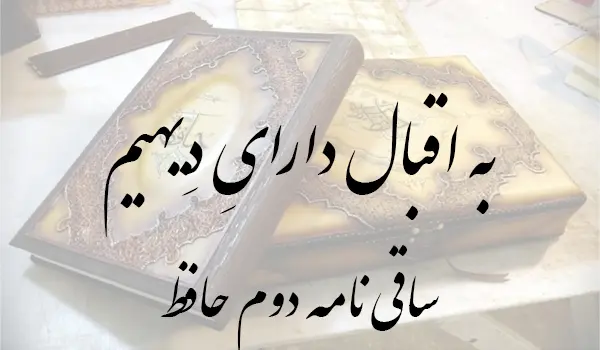 به اقبال دارایِ دِیهیم
ساقی نامه دوم حافظ